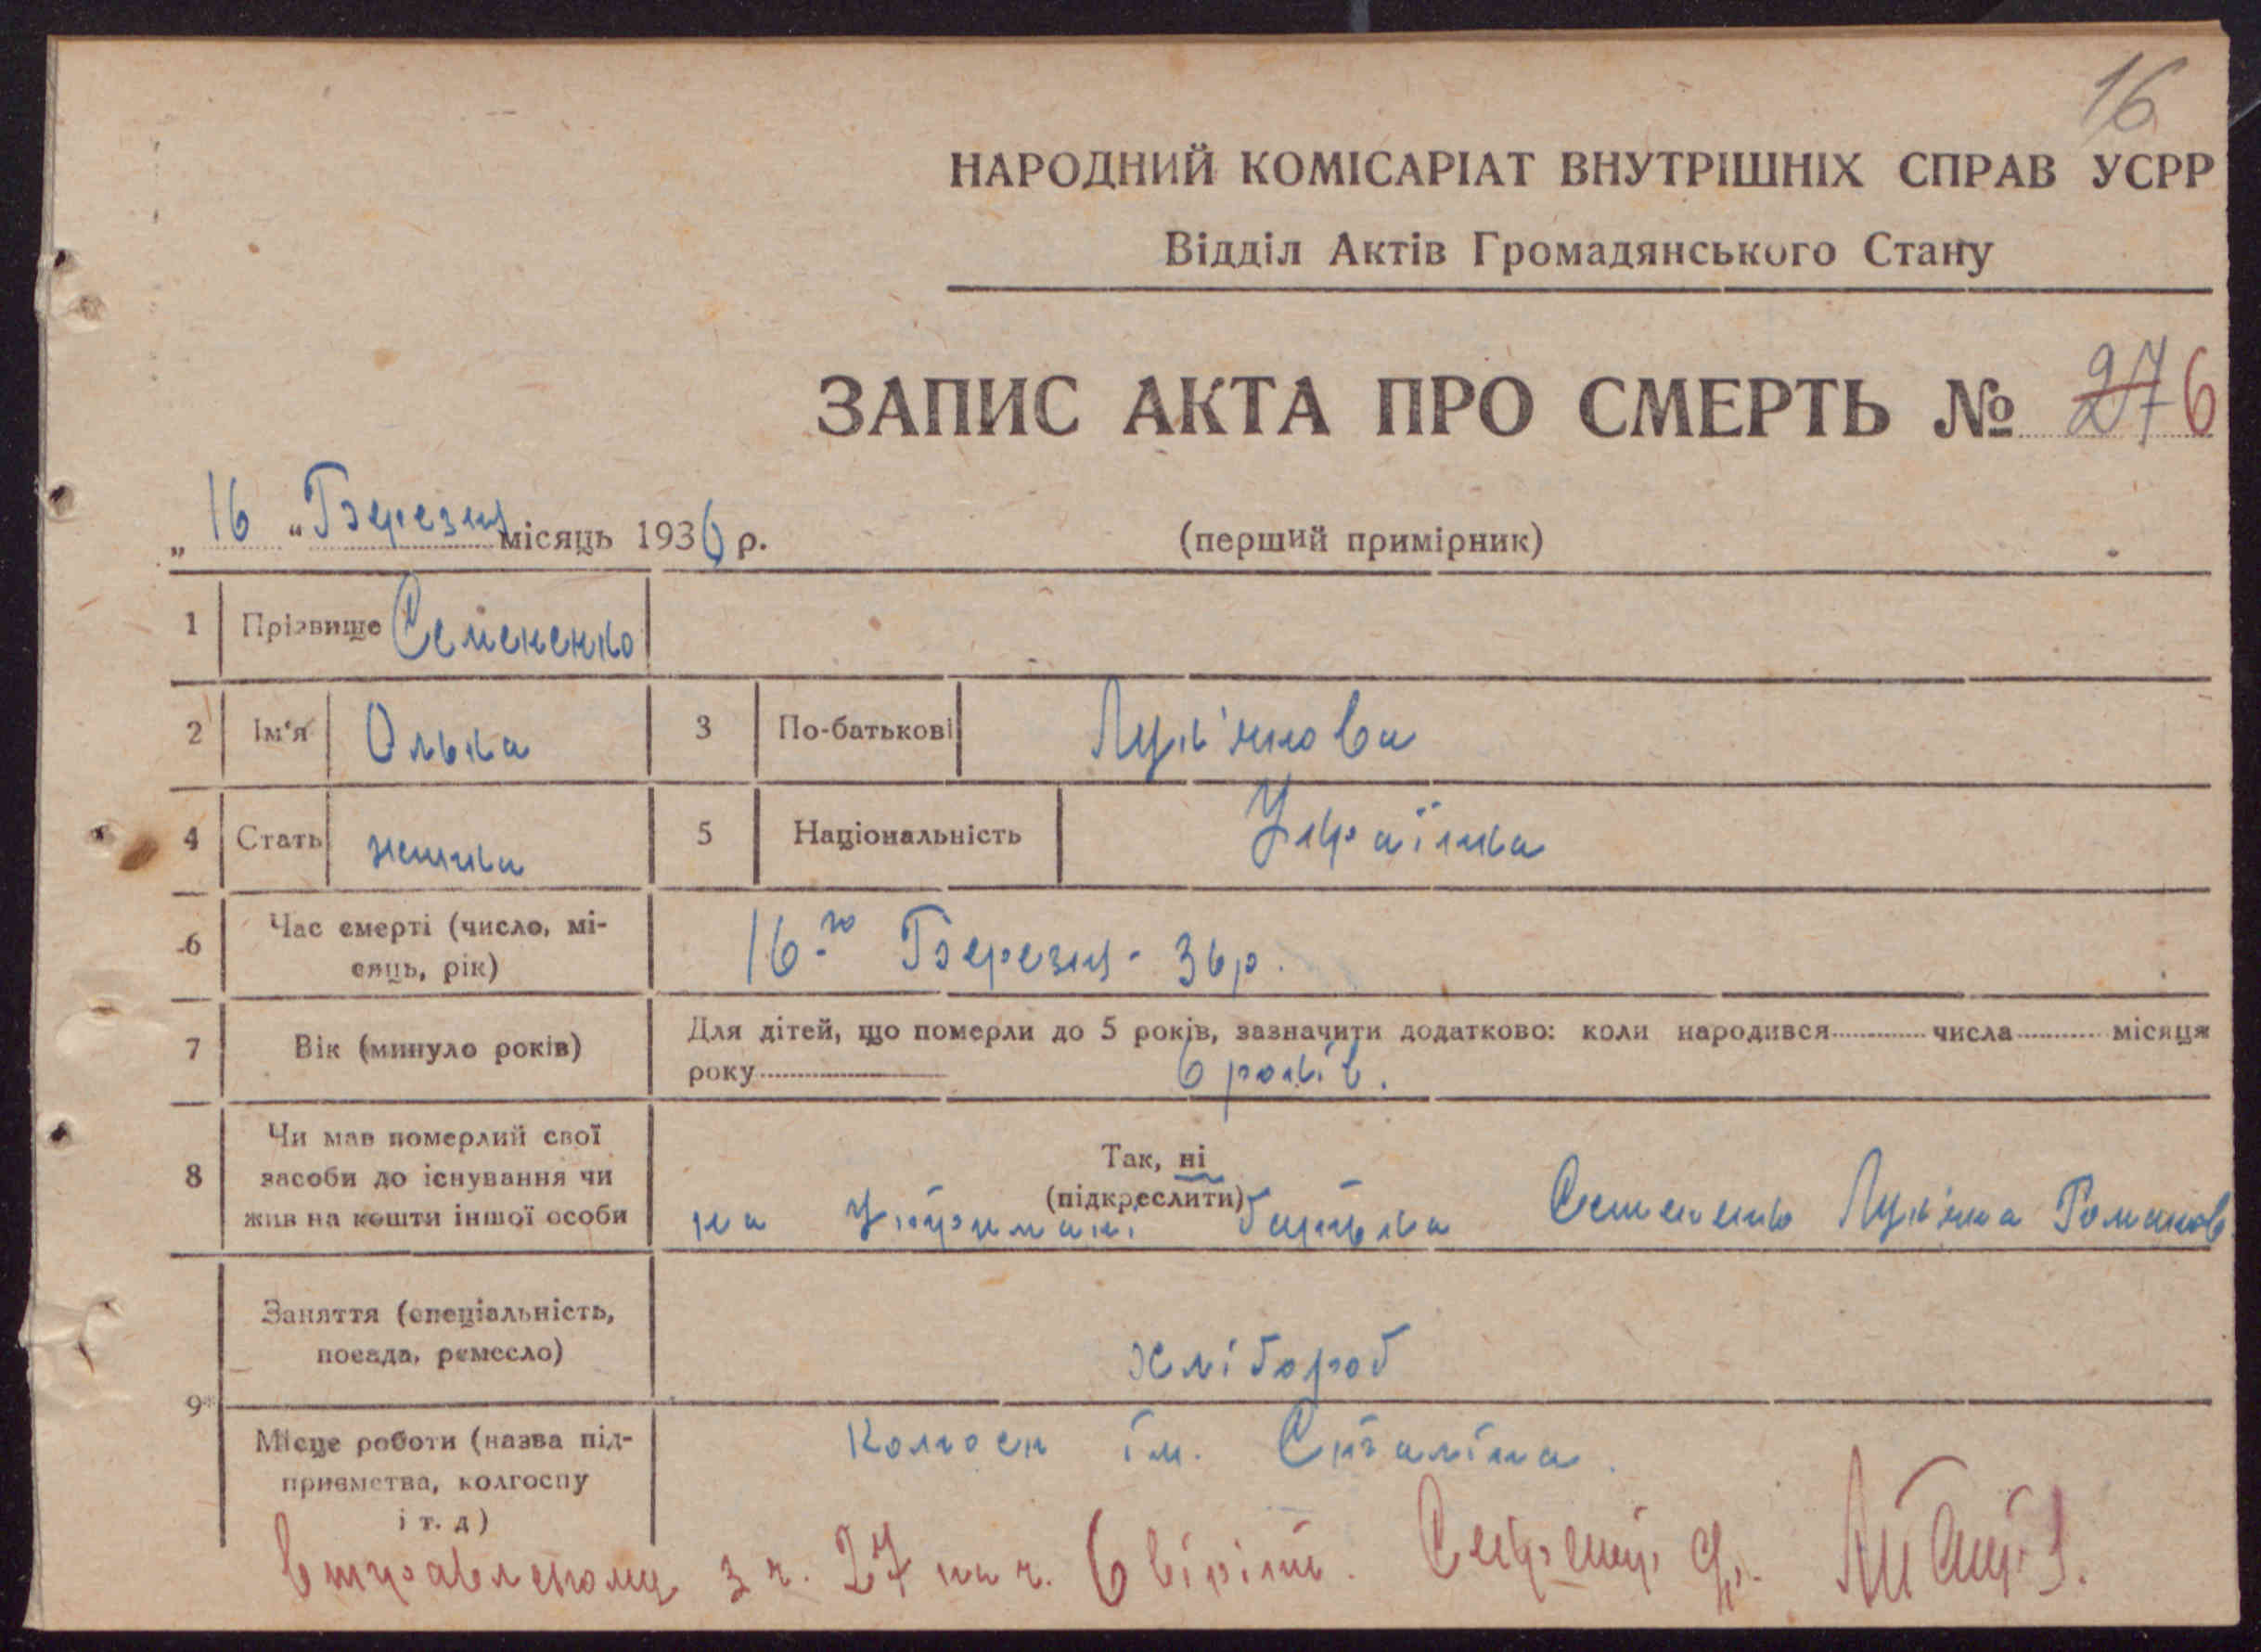 16
НАРОДНИЙ КОМІСАРІАТ ВНУТРІШНІХ СПРАВ УСРР
Відділ Актів Громадянського Стану
ЗАПИС АКТА ПРО СМЕРТЬ № 27 6
„ 16 “ Березня місяць 1936 р. (перший примірник)
1 Прізвище Семененко
2 Ім'я Олька 3 По-батькові Лук'янова
4 Стать жінка 5 Національність Українка
6 Час смерті (число, мі-
сяць, рік) 16-го Березня - 36 р.
7 Вік (минуло років) Для дітей, що померли до 5 років, зазначити додатково: коли народився числа місяця
року 6 років.
8 Чи мав померлий свої
засоби до існування чи
жив на кошти іншої особи
Так, ні
(підкреслити)
на утримані батька Семененко Лук'яна Романов
9*
Заняття (спеціальність,
посада, ремесло) хлібороб
Місце роботи (назва під-
приємства, колгоспу
і т. д) Колгосп ім. Сталіна.
з ч. 27 на ч. 6 вірить. Секретар